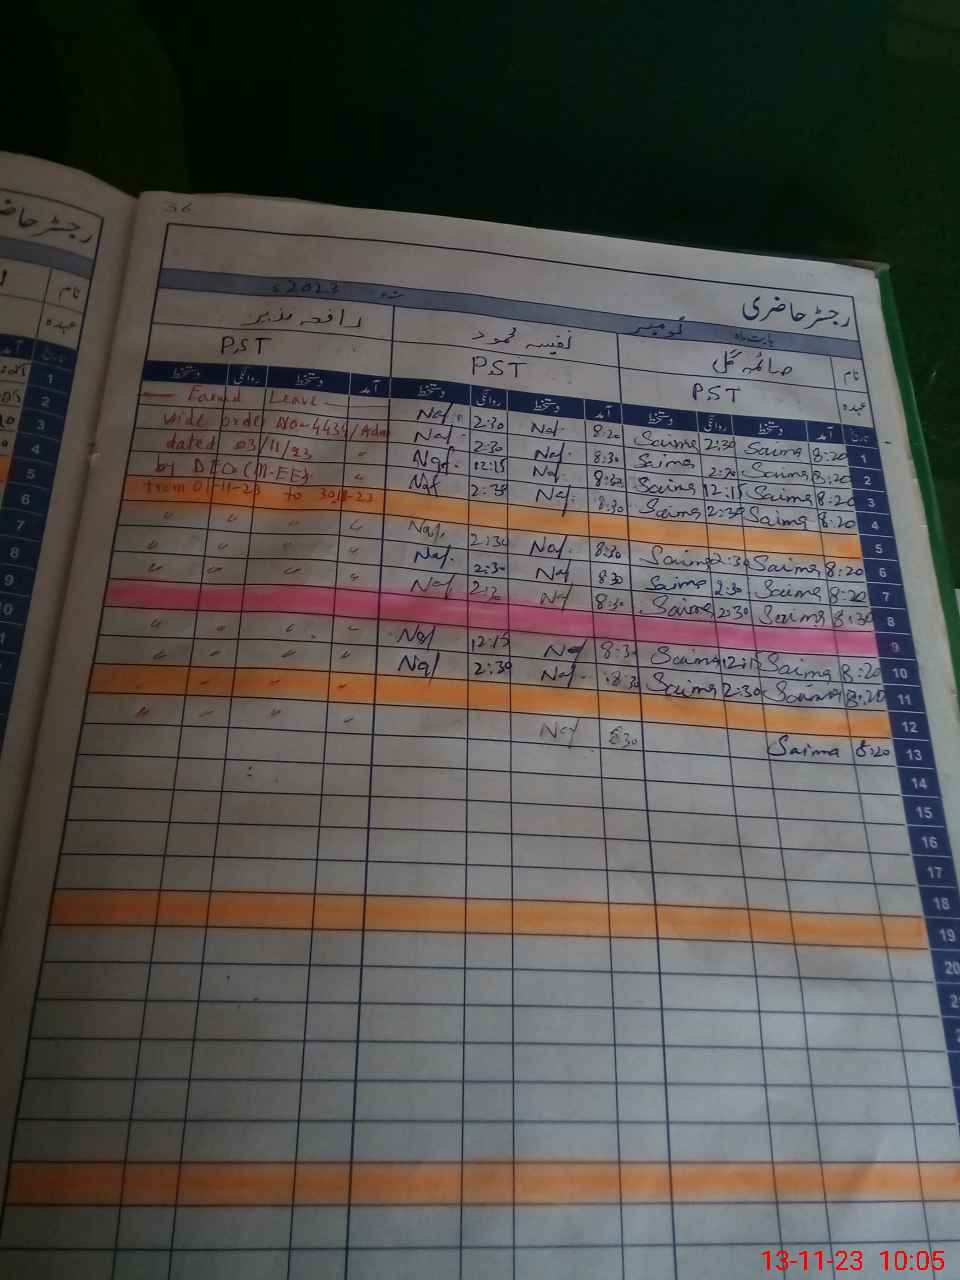 36
رجسٹر حاضری
بابت ماہ نومبر سنہ 2023ء
نام صائمہ گل نفیسہ محمود رافعہ نذیر
عہدہ PST PST PST
تاریخ آمد دستخط روانگی دستخط آمد دستخط روانگی دستخط آمد دستخط روانگی دستخط
1 8:20 Saima 2:30 Saima 8:20 Naf. 2:30 Naf. Earned Leave
2 8:20 Saima 2:20 Saima 8:30 Naf. 2:30 Naf. vide order No-4434/Adm
3 8:20 Saima 12:15 Saima 8:30 Naf. 12:15 Naf. dated 03/11/23 "
4 8:20 Saima 2:30 Saima 8:30 Naf. 2:30 Naf by DEO(M-EE) "
5 from 01-11-23 to 30-11-23
6 8:20 Saima 2:30 Saima 8:30 Naf. 2:30 Naf. " " " "
7 8:20 Saima 2:30 Saima 8:30 Naf 2:30 Naf. " " " "
8 8:30 Saima 2:30 Saima 8:30 Naf 2:30 Naf " " " "
9
10 8:20 Saima 12:15 Saima 8:30 Naf 12:15 Naf " " " "
11 8:20 Saima 2:30 Saima 8:30 Naf. 2:30 Naf " " " "
12 " " " "
13 8:20 Saima 8:30 Naf " " " "
14
15
16
17
18
19
20
رجسٹر حاضری
نام
عہدہ
تاریخ آمد
1
2
3
4
5
6
7
8
9
10
13-11-23 10:05